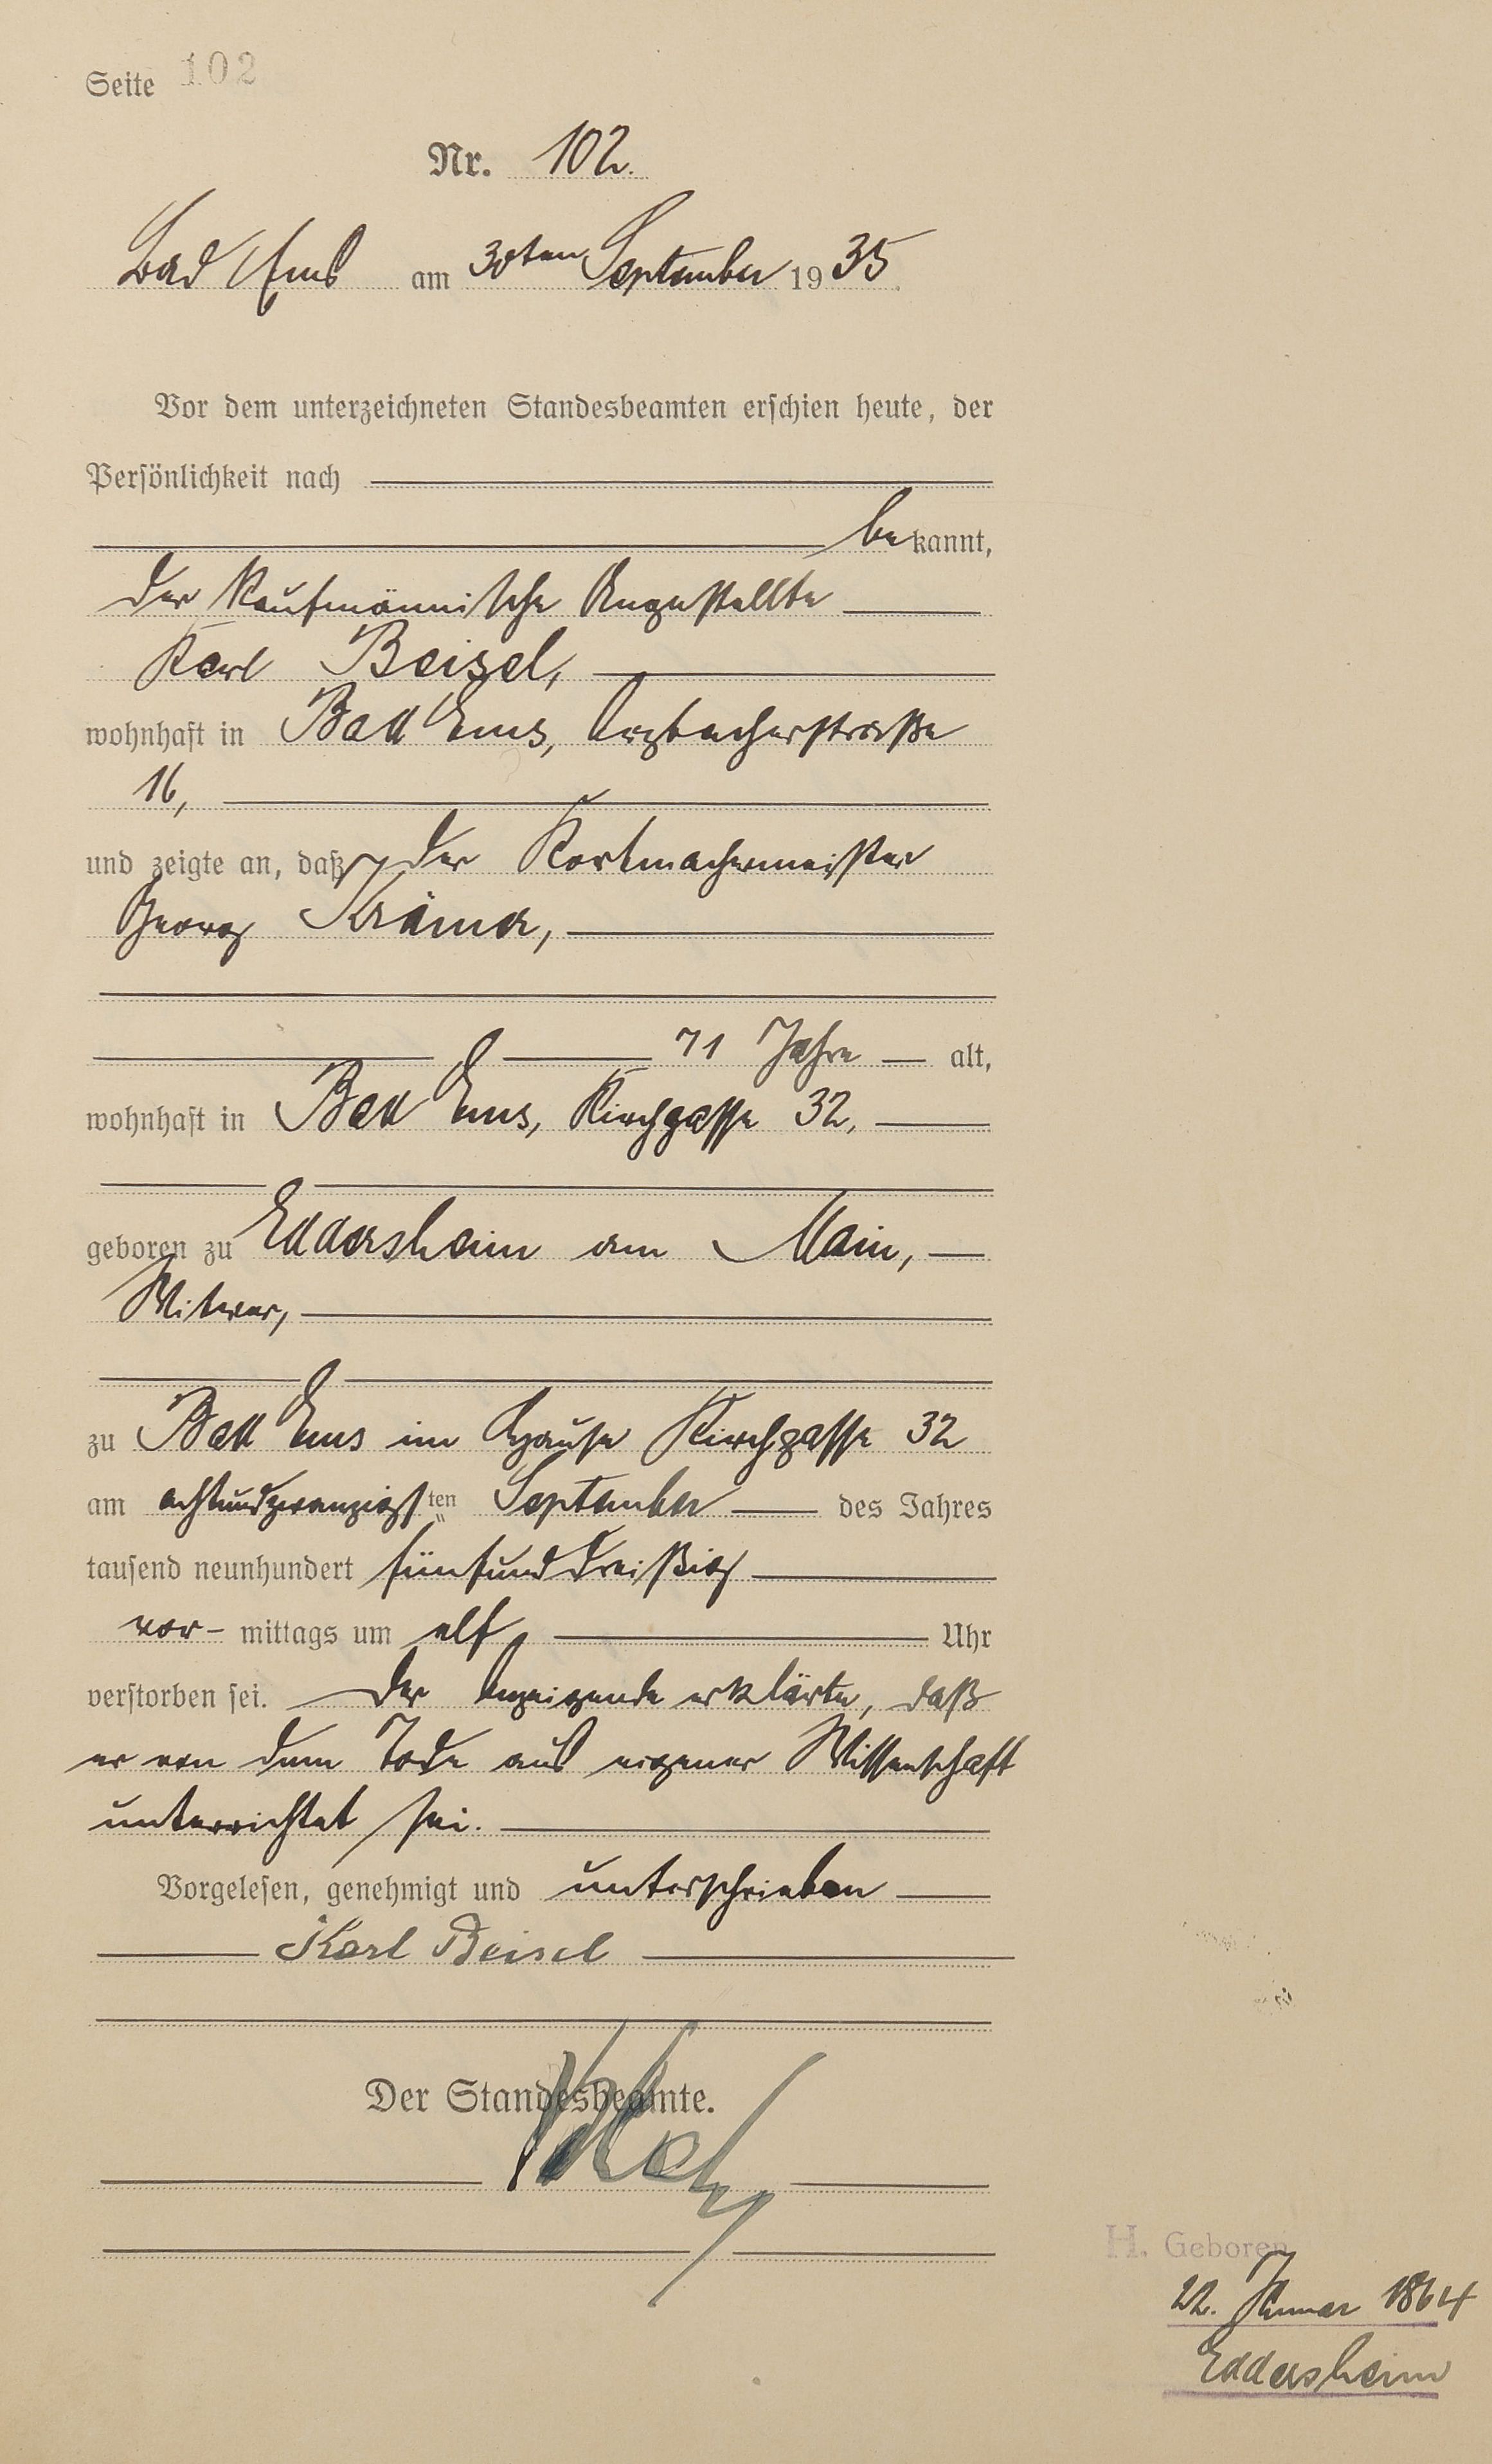 Seite 102
Nr. 102.
Bad Ems am 30ten September 1935.
Vor dem unterzeichneten Standesbeamten erschien heute, der
Persönlichkeit nach
bekannt,
der kaufmännische Angestellte
Karl Beisel,
wohnhaft in Bad Ems, Arzbacherstraße
16,
und zeigte an, daß der Korbmachermeister
Georg Krämer,
71 Jahre alt,
wohnhaft in Bad Ems, Kirchgasse 32,
geboren zu Eddersheim am Main,
Witwer,
zu Bad Ems im Hause Kirchgasse 32
am achtundzwanzigsten September des Jahres
tausend neunhundert fünfunddreißig
vor-mittags um elf Uhr
verstorben sei. Der Anzeigende erklärte, daß
er von dem Tode aus eigener Wissenschaft
unterrichtet sei.
Vorgelesen, genehmigt und unterschrieben
Karl Beisel
Der Standesbeamte.
H. Geboren
22. Januar 1864
Eddersheim